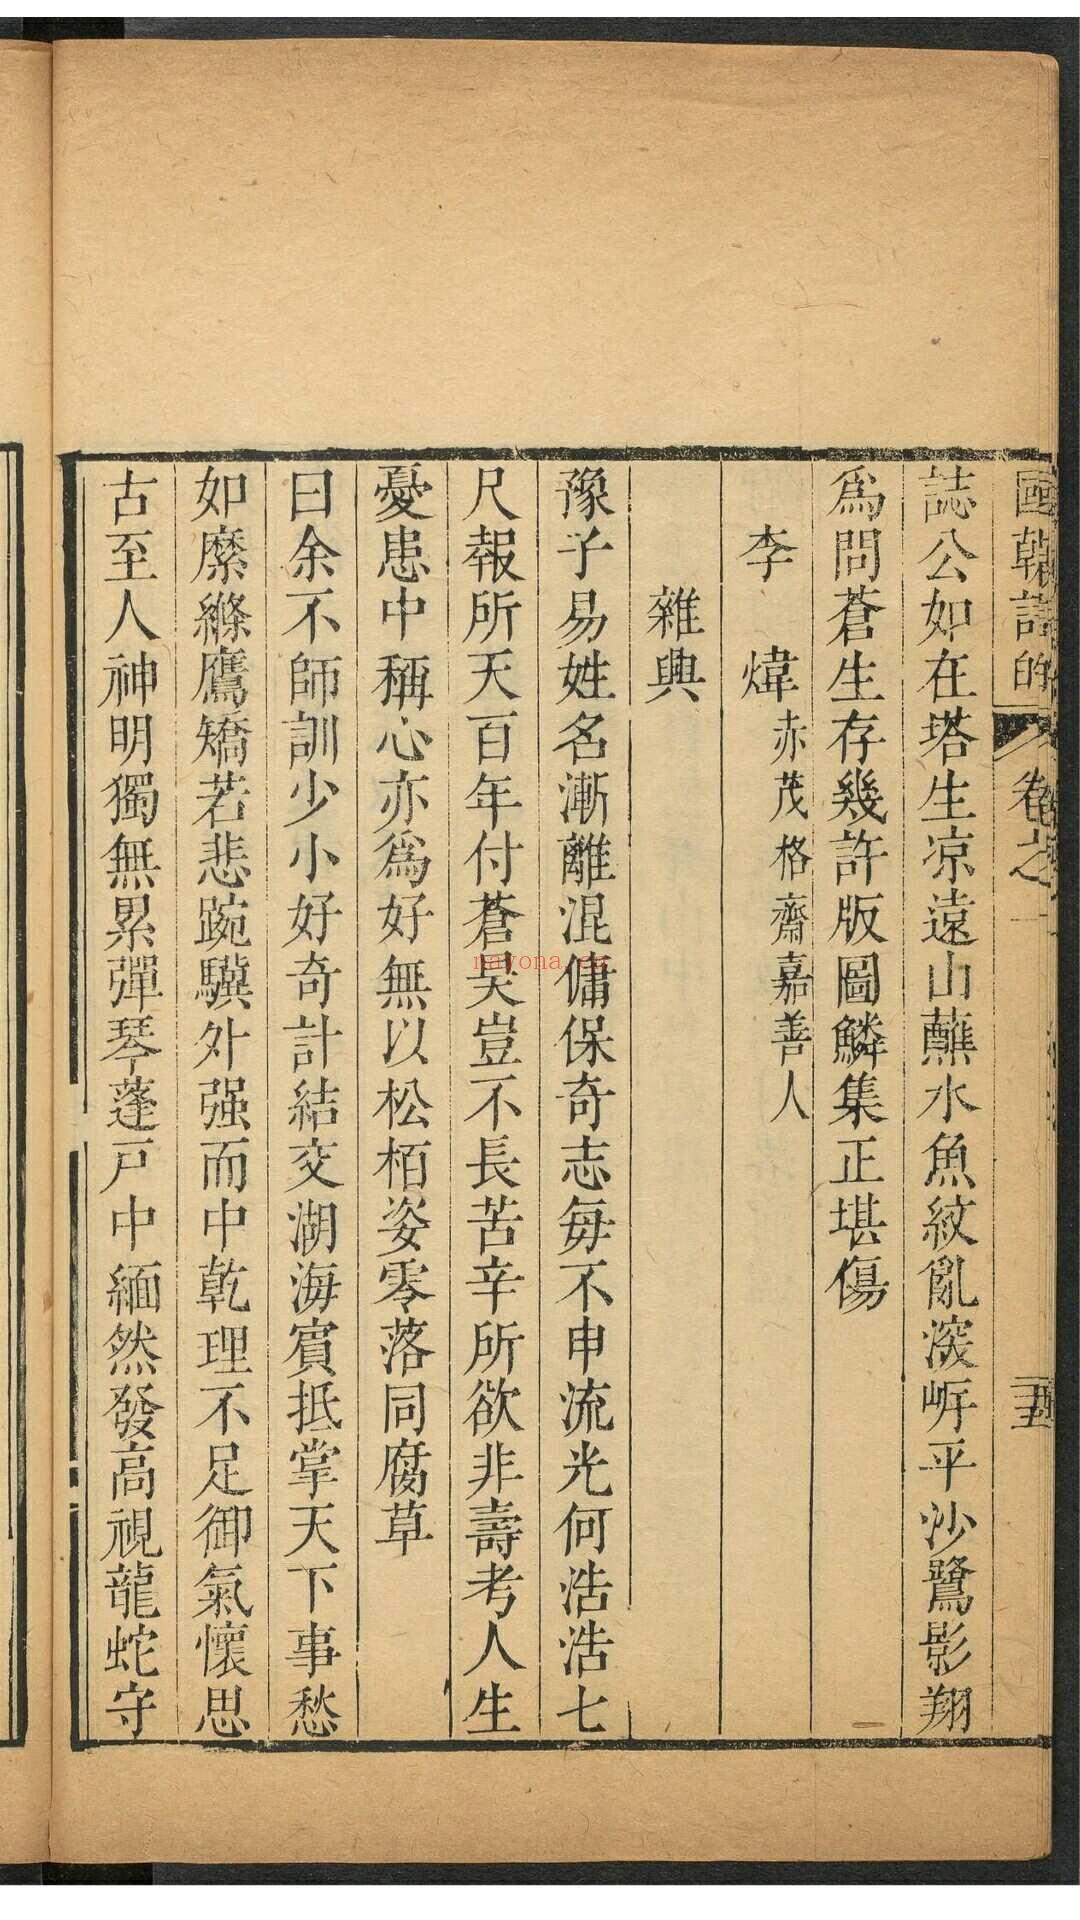 誌公如在塔生凉遠山蘸水魚紋亂深㟁平沙鷺影翔
爲問蒼生存幾許版圖鱗集正堪傷
李煒赤茂格齋嘉善人
雜興
豫子易姓名漸離混傭保奇志毎不申流光何浩浩七
尺報所天百年付蒼昊豈不長苦辛所欲非壽考人生
憂患中稱心亦爲好無以松栢姿零落同腐草
曰余不師訓少小好奇計結交湖海賔抵掌天下事愁
如縻絛鷹矯若悲踠驥外强而中乾理不足御氣懷思
古至人神明獨無累彈琴蓬戸中緬然發高視龍蛇守
卷之一
五
nayona.cn